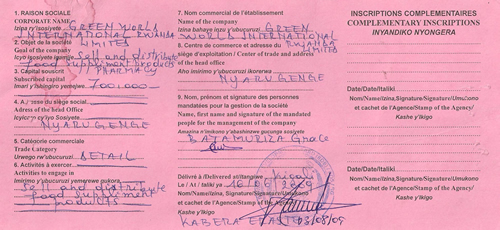 1. RAISON SOCIALE
CORPORATE NAME
Izina ry'isosiyete GREEN WORLD
INTERNATIONAL RWANDA
LIMITED
2. Objet de la société
Goal of the company
Icyo isosiyete igamije Sell and distribute
food supplement products
// PHARMACY
3. Capital souscrit
Subscribed capital
Imari y'ishingiro yemejwe
4. Adresse du siège social
Adress of the head Office
Icyicaro cy'Isosiyete
NYARUGENGE
5. Catégorie commerciale
Trade Category
Urwego rw'ubucuruzi RETAIL
6. Activités à exercer
Activities to engage in
Imirimo y'ubucuruzi yemerewe gukora
Sell and distribute
food supplement
products
7. Nom commercial de l'établissement
Name of the company
Izina bahaye inzu y'ubucuruzi GREEN
WORLD INTERNATIONAL
RWANDA LIMITED
8. Centre de commerce et adresse du
siège d'exploitation / Center of trade and address
of the head office
Aho imirimo y'ubucuruzi ikorerwa
NYARUGENGE
9. Nom, prénom et signature des personnes
mandatées pour la gestion de la société
Name, first name and signature of the mandated
people for the management of the company
Amazina n'imikono y'abashinzwe gucunga sosiyete
BATAMURIZA Grace
Délivré à / Delivered at / Itangiwe Kigali
Le / At / Italiki ya
Nom/Name/Izina, Signature/Signature/Umukono
et cachet de l'Agence/Stamp of the Agency/
Kashe y'ikigo
KABERA
03/08/09
INSCRIPTIONS COMPLEMENTAIRES
COMPLEMENTARY INSCRIPTIONS
INYANDIKO NYONGERA
Date/Date/Italiki
Nom/Name/Izina,Signature/Signature/Umukono
et cachet de l'Agence/Stamp of the Agency/
Kashe y'ikigo
Date/Date/Italiki
Nom/Name/Izina,Signature/Signature/Umukono
et cachet de l'Agence/Stamp of the Agency/
Kashe y'ikigo